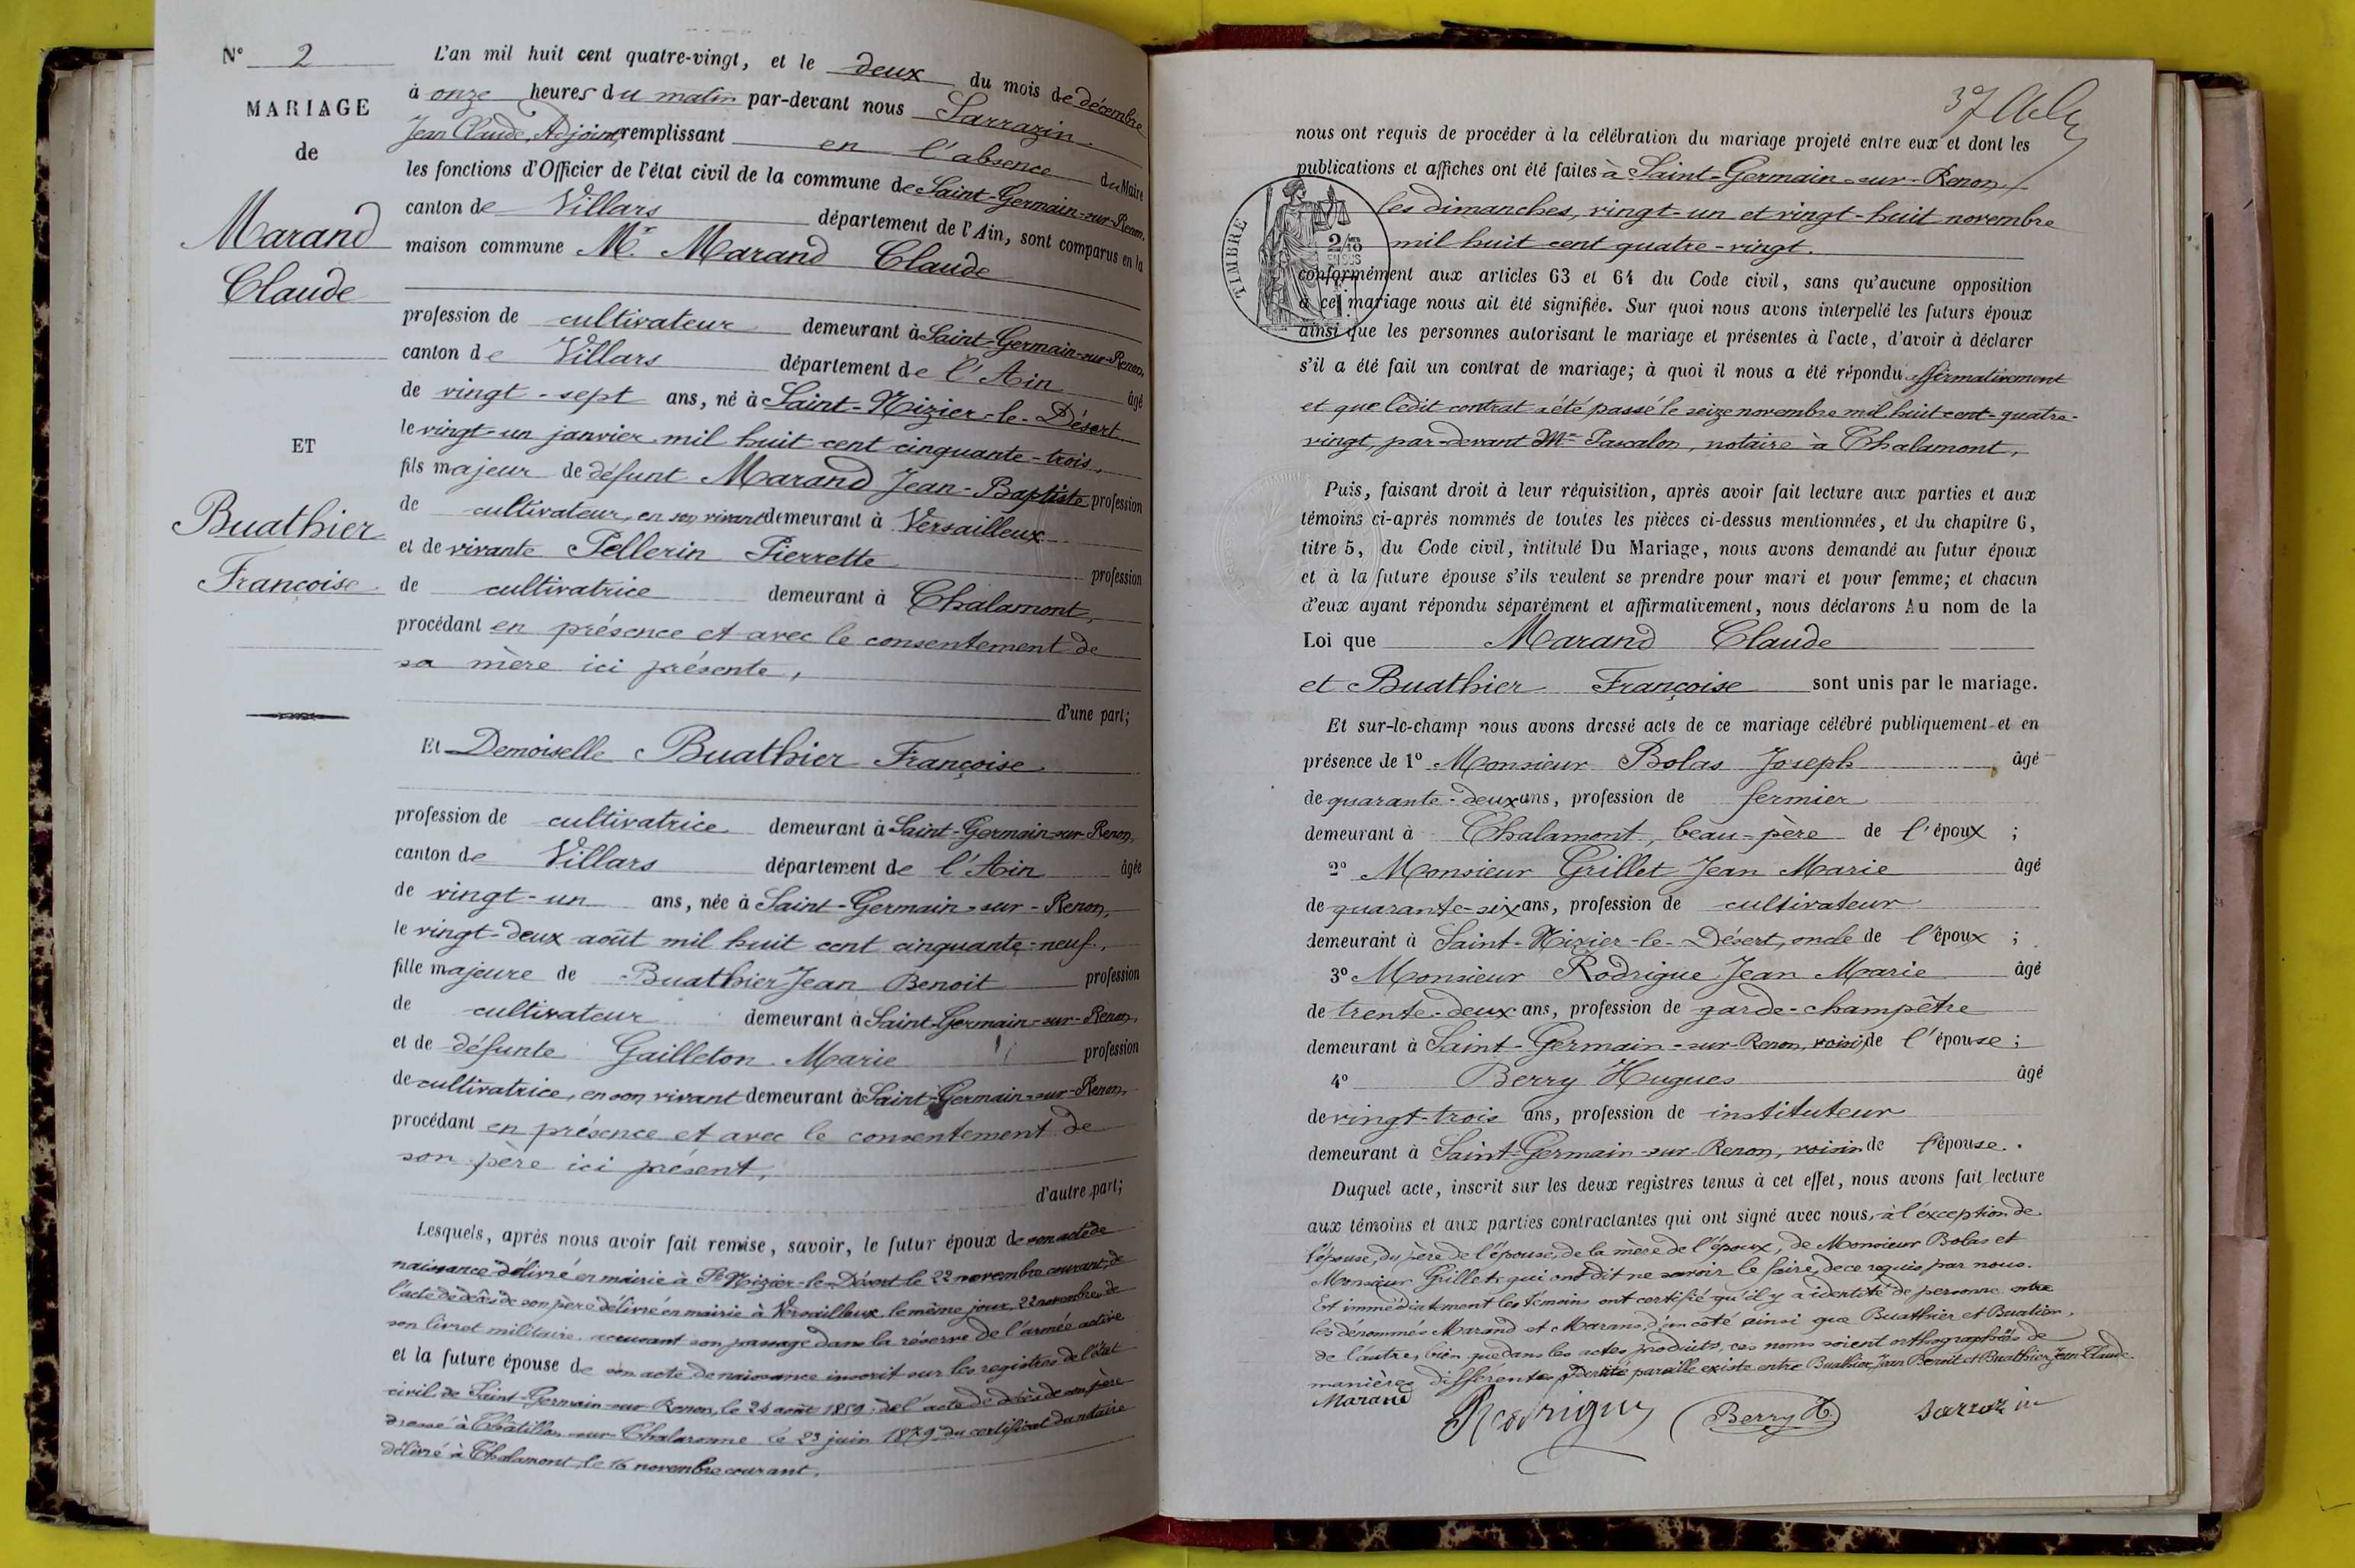 N° 2
MARIAGE
de
Marand
Claude
ET
Buathier
Françoise
L'an mil huit cent quatre-vingt, et le deux du mois de décembre
à onze heures du matin par-devant nous Sarrazin
Jean Claude, Adjoint, remplissant en l'absence du Maire
les fonctions d'Officier de l'état civil de la commune de Saint-Germain-sur-Renon,
canton de Villars département de l'Ain, sont comparus en la
maison commune Mr. Marand Claude
profession de cultivateur demeurant à Saint-Germain-sur-Renon,
canton de Villars département de l'Ain âgé
de vingt-sept ans, né à Saint-Nizier-le-Désert
le vingt-un janvier mil huit cent cinquante-trois,
fils majeur de défunt Marand Jean-Baptiste profession
de cultivateur, en son vivant demeurant à Versailleux
et de vivante Pellerin Pierrette profession
de cultivatrice demeurant à Chalamont,
procédant en présence et avec le consentement de
sa mère ici présente,
d'une part;
Et Demoiselle Buathier Françoise
profession de cultivatrice demeurant à Saint-Germain-sur-Renon,
canton de Villars département de l'Ain âgée
de vingt-un ans, née à Saint-Germain-sur-Renon,
le vingt-deux août mil huit cent cinquante-neuf,
fille majeure de Buathier Jean Benoit profession
de cultivateur demeurant à Saint-Germain-sur-Renon,
et de défunte Gailleton Marie profession
de cultivatrice, en son vivant demeurant à Saint-Germain-sur-Renon,
procédant en présence et avec le consentement de
son père ici présent,
d'autre part;
Lesquels, après nous avoir fait remise, savoir, le futur époux de son acte de
naissance délivré en mairie à St Nizier-le-Désert le 22 novembre courant, de
l'acte de décès de son père délivré en mairie à Versailleux le même jour, 22 novembre, de
son livret militaire accusant son passage dans la réserve de l'armée active
et la future épouse de son acte de naissance inscrit sur les registres de l'état
civil de Saint-Germain-sur-Renon, le 24 août 1859, de l'acte de décès de sa mère
dressé à Châtillon-sur-Chalaronne le 23 juin 1879, du certificat du notaire
délivré à Chalamont, le 16 novembre courant,
37
nous ont requis de procéder à la célébration du mariage projeté entre eux et dont les
publications et affiches ont été faites à Saint-Germain-sur-Renon
les dimanches, vingt-un et vingt-huit novembre
mil huit cent quatre-vingt.
TIMBRE
conformément aux articles 63 et 64 du Code civil, sans qu'aucune opposition
à ce mariage nous ait été signifiée. Sur quoi nous avons interpellé les futurs époux
ainsi que les personnes autorisant le mariage et présentes à l'acte, d'avoir à déclarer
s'il a été fait un contrat de mariage; à quoi il nous a été répondu affirmativement
et que ledit contrat a été passé le seize novembre mil huit cent-quatre-
vingt, par-devant Me Pascalon, notaire à Chalamont,
Puis, faisant droit à leur réquisition, après avoir fait lecture aux parties et aux
témoins ci-après nommés de toutes les pièces ci-dessus mentionnées, et du chapitre 6,
titre 5, du Code civil, intitulé Du Mariage, nous avons demandé au futur époux
et à la future épouse s'ils veulent se prendre pour mari et pour femme; et chacun
d'eux ayant répondu séparément et affirmativement, nous déclarons Au nom de la
Loi que Marand Claude
et Buathier Françoise sont unis par le mariage.
Et sur-le-champ nous avons dressé acte de ce mariage célébré publiquement et en
présence de 1° Monsieur Bolas Joseph âgé
de quarante-deux ans, profession de fermier
demeurant à Chalamont, beau-père de l'époux ;
2° Monsieur Grillet Jean Marie âgé
de quarante-six ans, profession de cultivateur
demeurant à Saint-Nizier-le-Désert, oncle de l'époux ;
3° Monsieur Rodrigue Jean Marie âgé
de trente-deux ans, profession de garde-champêtre
demeurant à Saint-Germain-sur-Renon, voisin de l'épouse ;
4° Berry Hugues âgé
de vingt-trois ans, profession de instituteur
demeurant à Saint-Germain-sur-Renon, voisin de l'épouse.
Duquel acte, inscrit sur les deux registres tenus à cet effet, nous avons fait lecture
aux témoins et aux parties contractantes qui ont signé avec nous, à l'exception de
l'épouse, du père de l'épouse, de la mère de l'époux, de Monsieur Bolas et
Monsieur Grillet qui ont dit ne savoir le faire, de ce requis par nous.
Et immédiatement les témoins ont certifié qu'il y a identité de personne entre
les dénommés Marand et Marans, d'un côté ainsi que Buathier et Buatier,
de l'autre, bien que dans les actes produits, ces noms soient orthographiés de
manières différentes. Identité pareille existe entre Buathier Jean Benoit et Buathier Jean Claude.
Marand Rodrigue Berry H. Sarrazin